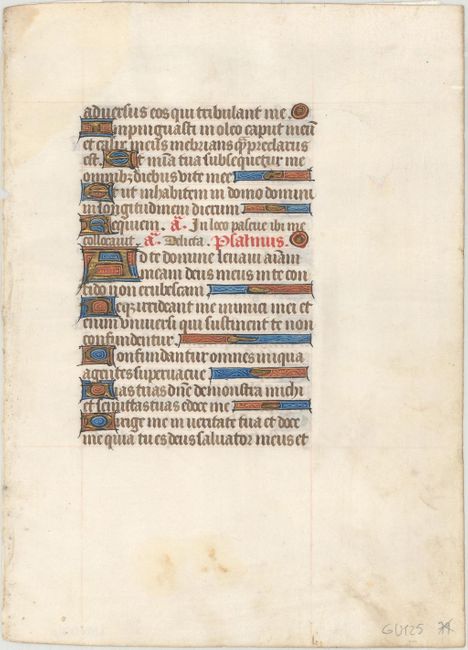 adversus eos qui tribulant me.
Inpinguasti in oleo caput meū
et calix meus inebrians q̄ preclarus
est. Et mīa tua subsequetur me
omnibꝫ diebus vite mee
Et ut inhabitem in domo domini
in longitudinem dierum
Requiem. a. In loco pascue ibi me
collocavit. a. Delicta. Psalmus.
Ad te domine levavi aīam
meam deus meus in te con
fido non erubescam
Neqꝫ irrideant me inimici mei et
enim universi qui sustinent te non
confundentur.
Confundantur omnes iniqua
agentes supervacue
Vias tuas dñe demonstra michi
et semitas tuas edoce me
Dirige me in veritate tua et doce
me quia tu es deus salvator meus et
GUI25